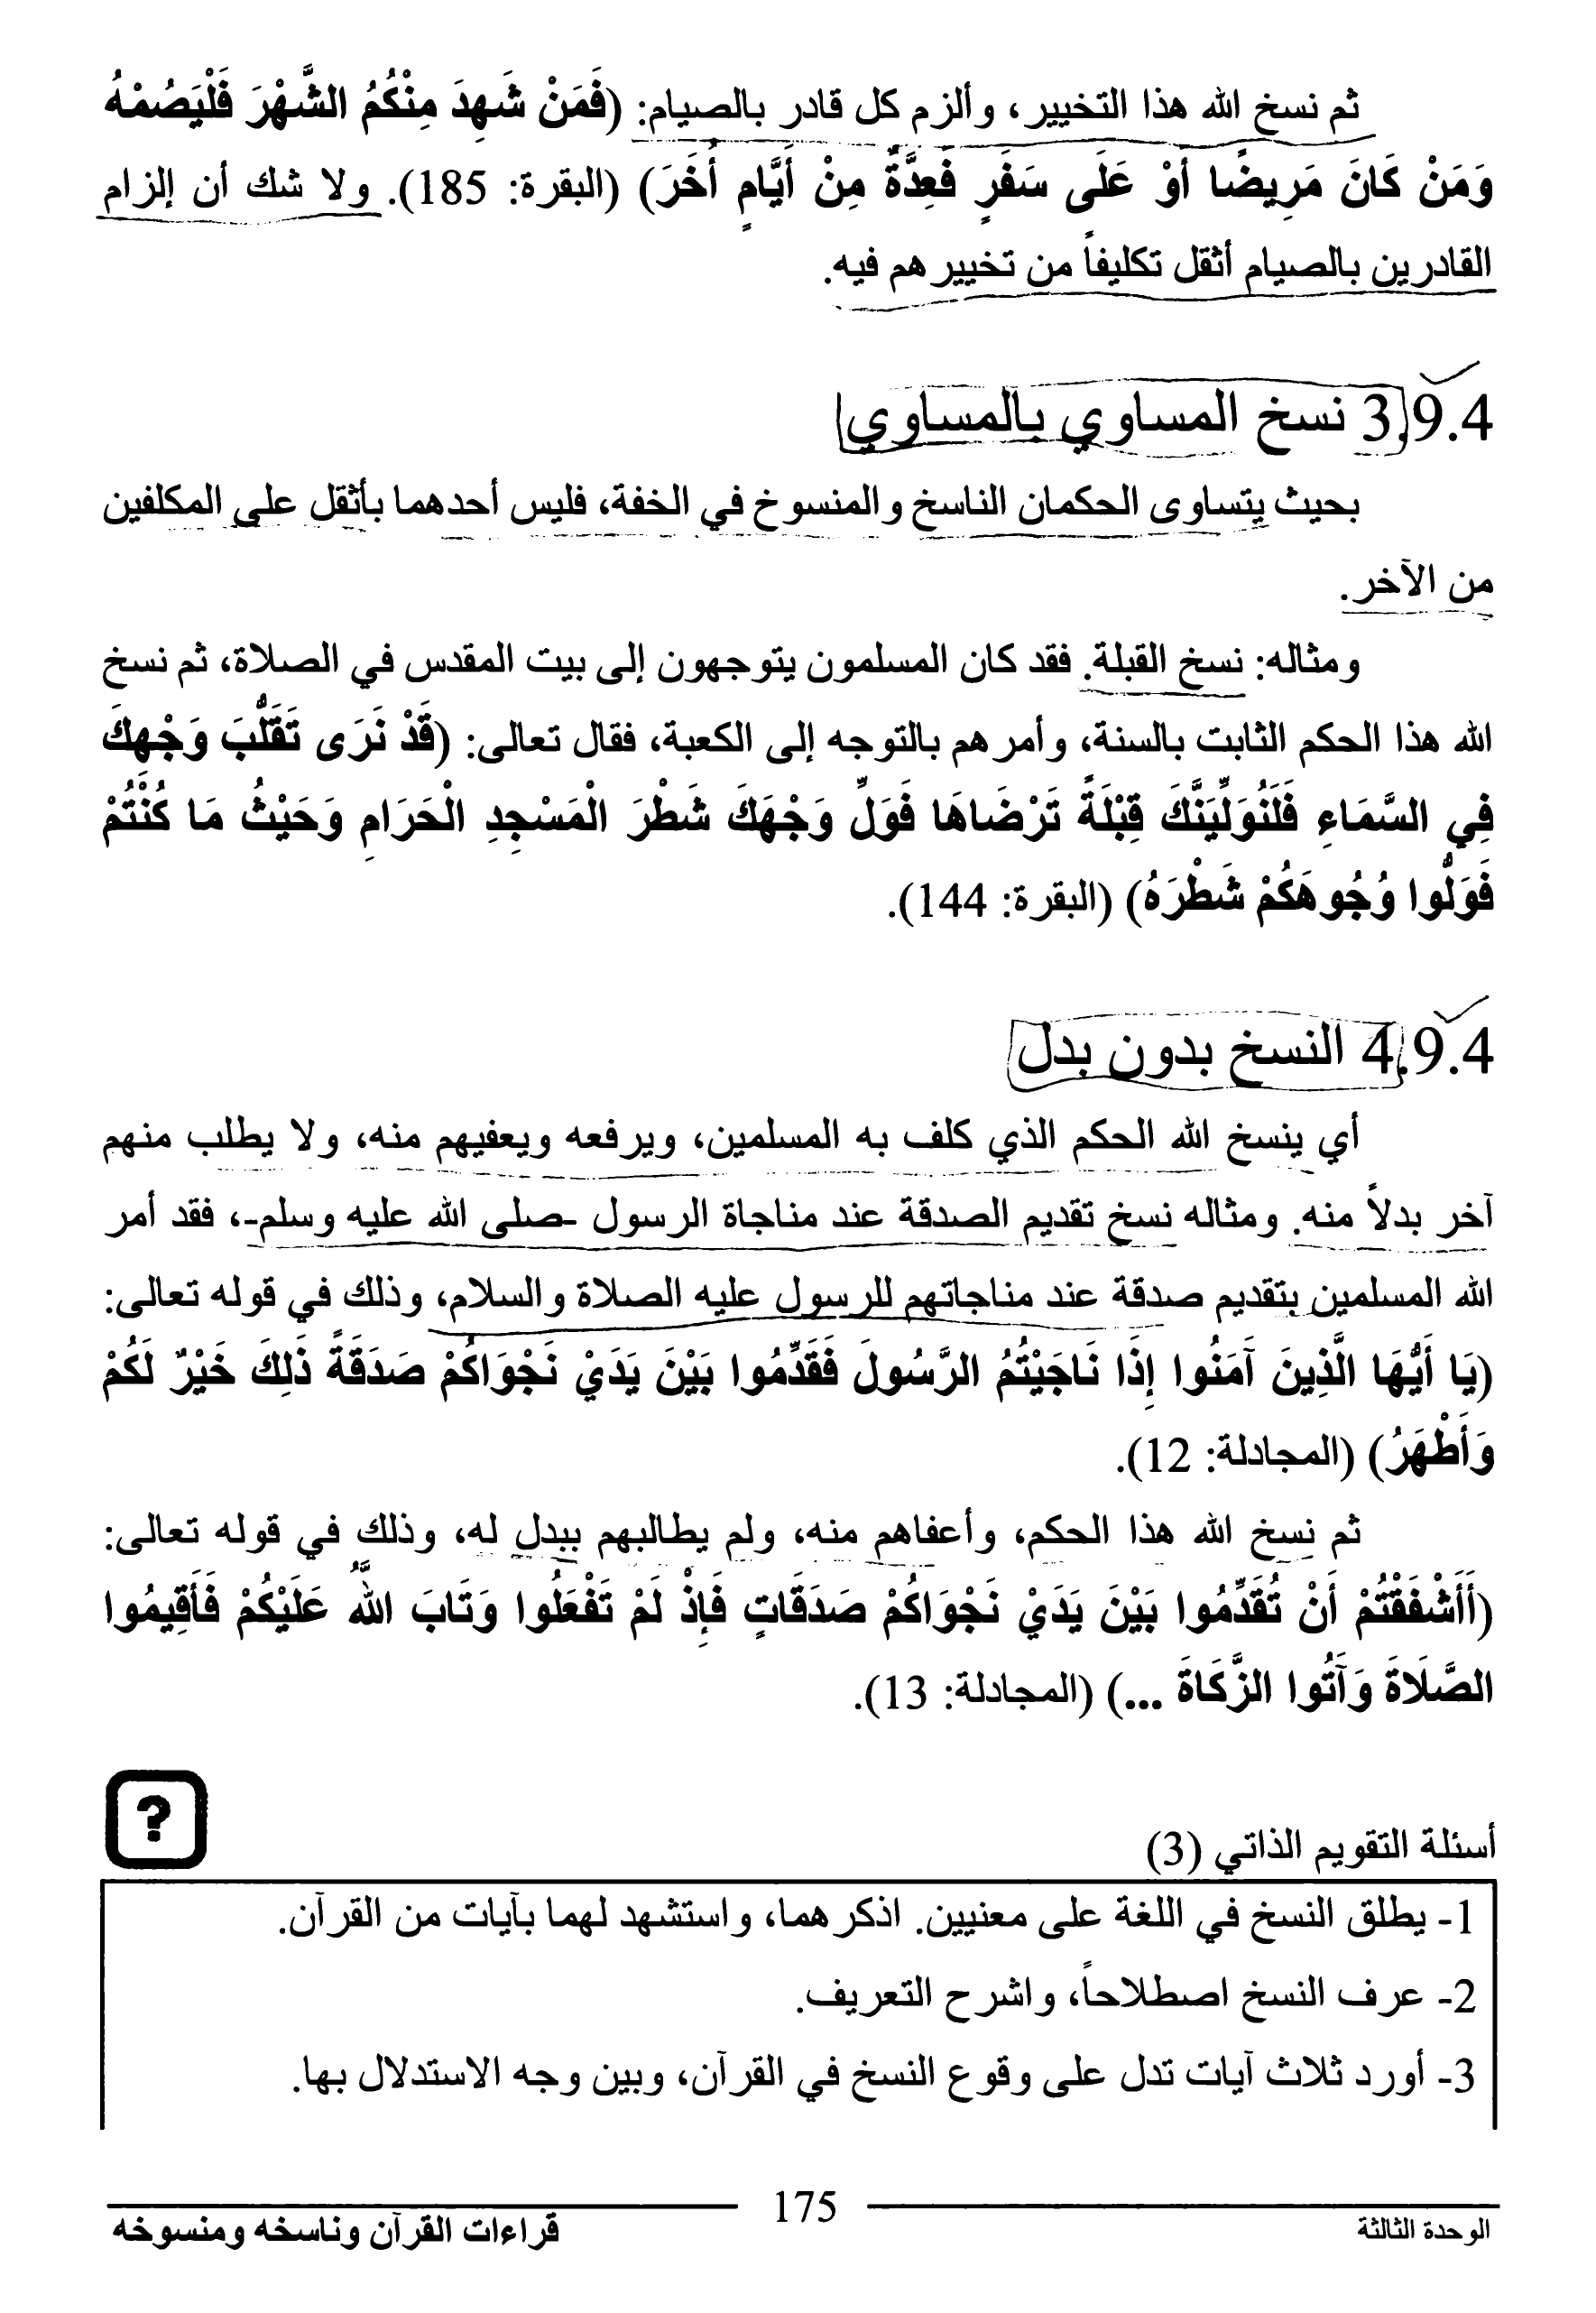 ثم نسخ الله هذا التخيير، وألزم كل قادر بالصيام: (فَمَنْ شَهِدَ مِنْكُمُ الشَّهْرَ فَلْيَصُمْهُ
وَمَنْ كَانَ مَرِيضًا أَوْ عَلَى سَفَرٍ فَعِدَّةٌ مِنْ أَيَّامٍ أُخَرَ) (البقرة: 185). ولا شك أن إلزام
القادرين بالصيام أثقل تكليفاً من تخييرهم فيه.
3.9.4 نسخ المساوي بالمساوي
بحيث يتساوى الحكمان الناسخ والمنسوخ في الخفة، فليس أحدهما بأثقل على المكلفين
من الآخر.
ومثاله: نسخ القبلة. فقد كان المسلمون يتوجهون إلى بيت المقدس في الصلاة، ثم نسخ
الله هذا الحكم الثابت بالسنة، وأمرهم بالتوجه إلى الكعبة، فقال تعالى: (قَدْ نَرَى تَقَلُّبَ وَجْهِكَ
فِي السَّمَاءِ فَلَنُوَلِّيَنَّكَ قِبْلَةً تَرْضَاهَا فَوَلِّ وَجْهَكَ شَطْرَ الْمَسْجِدِ الْحَرَامِ وَحَيْثُ مَا كُنْتُمْ
فَوَلُّوا وُجُوهَكُمْ شَطْرَهُ) (البقرة: 144).
4.9.4 النسخ بدون بدل
أي ينسخ الله الحكم الذي كلف به المسلمين، ويرفعه ويعفيهم منه، ولا يطلب منهم
آخر بدلاً منه. ومثاله نسخ تقديم الصدقة عند مناجاة الرسول -صلى الله عليه وسلم-، فقد أمر
الله المسلمين بتقديم صدقة عند مناجاتهم للرسول عليه الصلاة والسلام، وذلك في قوله تعالى:
(يَا أَيُّهَا الَّذِينَ آمَنُوا إِذَا نَاجَيْتُمُ الرَّسُولَ فَقَدِّمُوا بَيْنَ يَدَيْ نَجْوَاكُمْ صَدَقَةً ذَلِكَ خَيْرٌ لَكُمْ
وَأَطْهَرُ) (المجادلة: 12).
ثم نسخ الله هذا الحكم، وأعفاهم منه، ولم يطالبهم ببدل له، وذلك في قوله تعالى:
(أَأَشْفَقْتُمْ أَنْ تُقَدِّمُوا بَيْنَ يَدَيْ نَجْوَاكُمْ صَدَقَاتٍ فَإِذْ لَمْ تَفْعَلُوا وَتَابَ اللَّهُ عَلَيْكُمْ فَأَقِيمُوا
الصَّلَاةَ وَآتُوا الزَّكَاةَ ...) (المجادلة: 13).
?
أسئلة التقويم الذاتي (3)
1- يطلق النسخ في اللغة على معنيين. اذكرهما، واستشهد لهما بآيات من القرآن.
2- عرف النسخ اصطلاحاً، واشرح التعريف.
3- أورد ثلاث آيات تدل على وقوع النسخ في القرآن، وبين وجه الاستدلال بها.
175
الوحدة الثالثة
قراءات القرآن وناسخه ومنسوخه